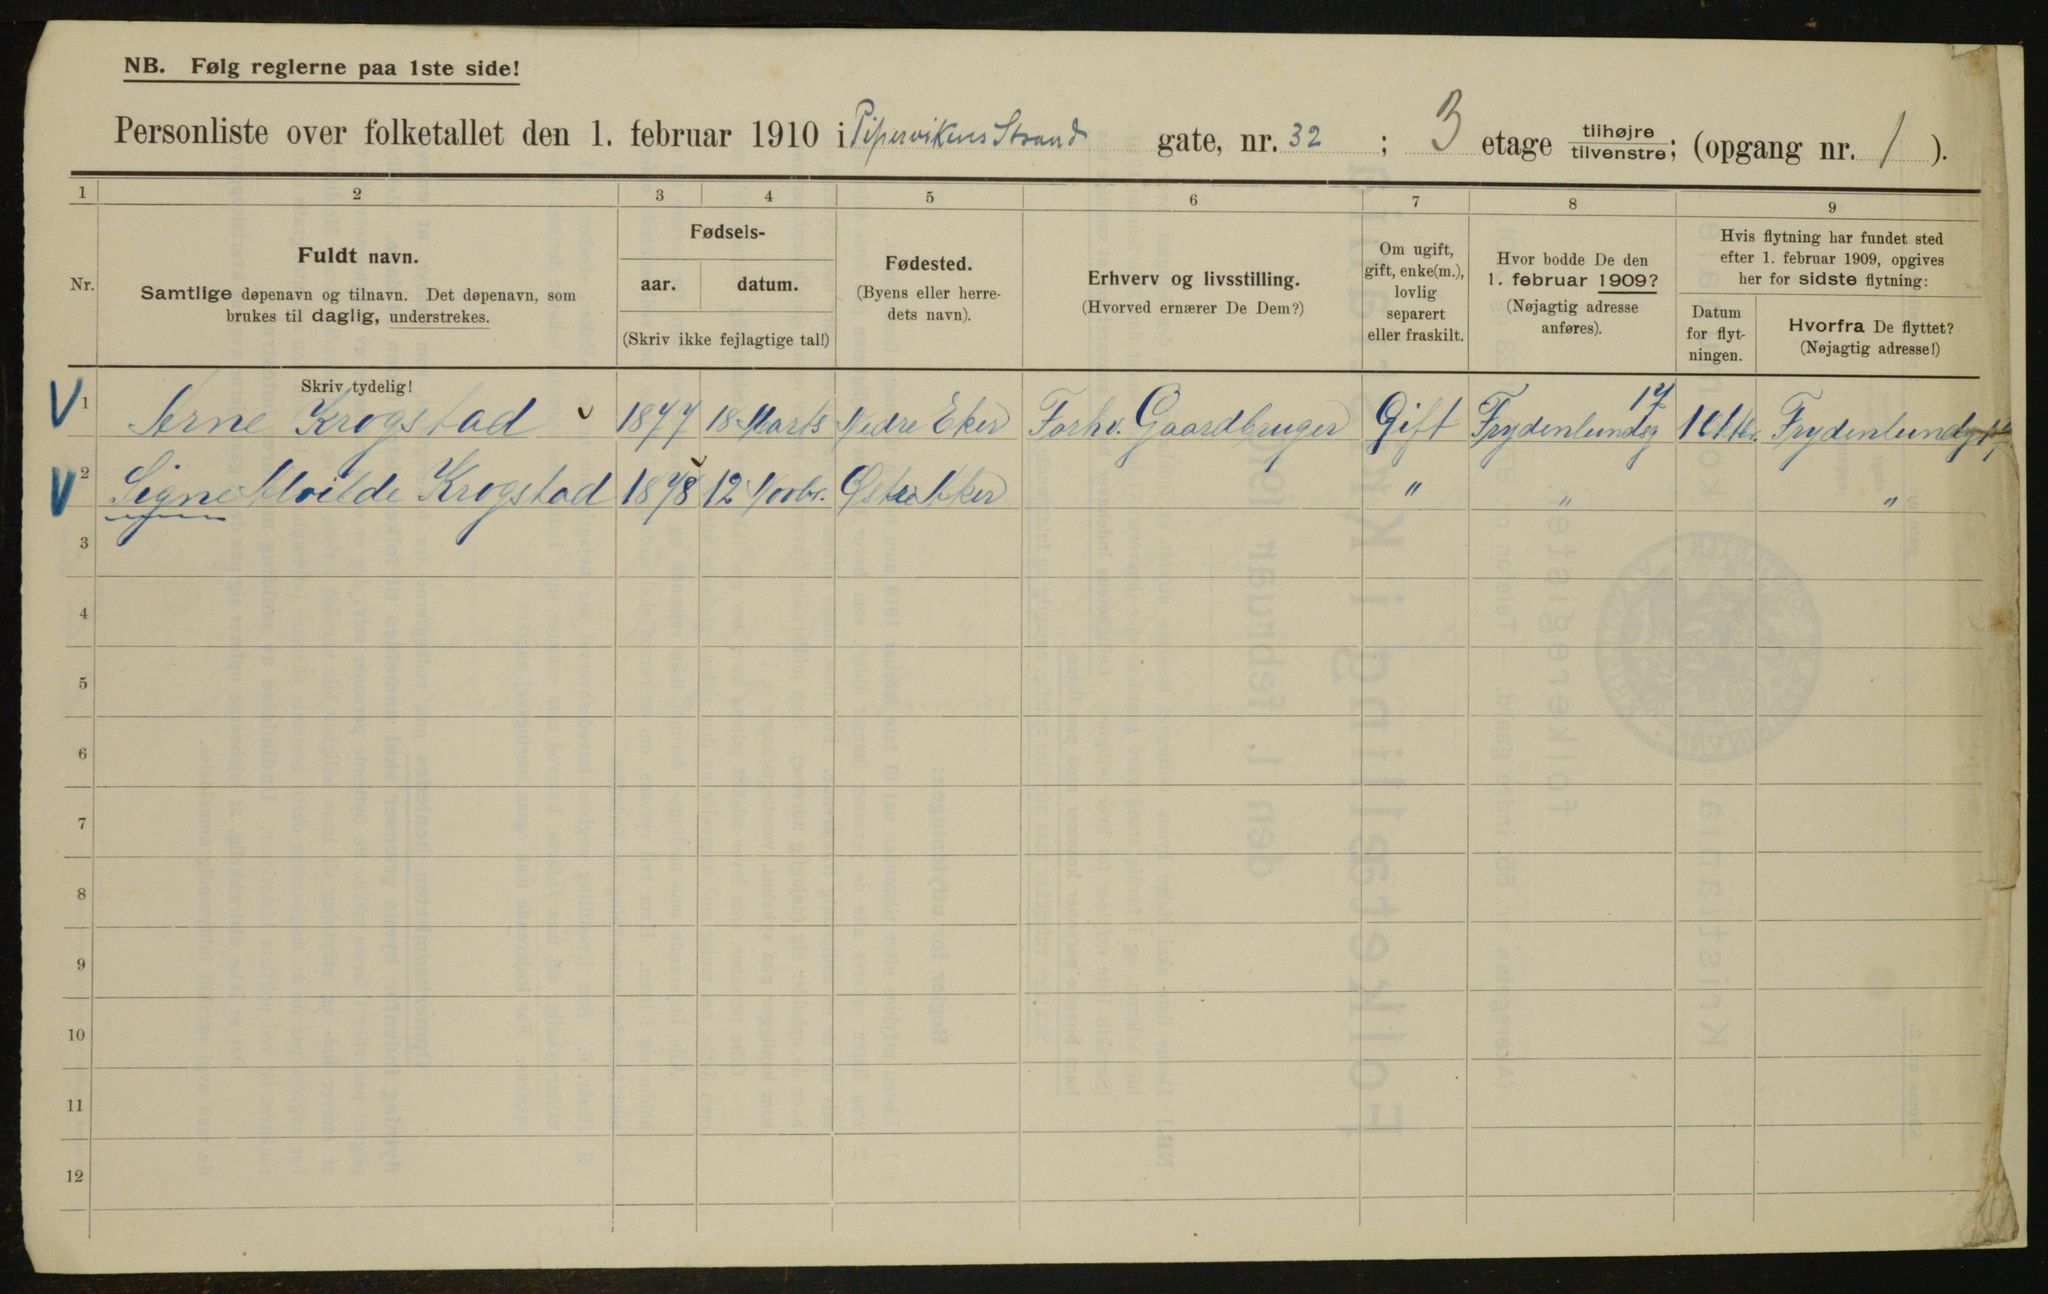 NB. Følg reglerne paa 1ste side!
Personliste over folketallet den 1. februar 1910 i Pipervikens Strand gate, nr. 32 ; 3 etage tilhøjre tilvenstre; (opgang nr. 1 ).
1 2 3 4 5 6 7 8 9
Nr.
Fuldt navn.
Samtlige døpenavn og tilnavn. Det døpenavn, som
brukes til daglig, understrekes.
Fødsels-
aar. datum.
(Skriv ikke fejlagtige tal!)
Fødested.
(Byens eller herre-
dets navn).
Erhverv og livsstilling.
(Hvorved ernærer De Dem?)
Om ugift,
gift, enke(m.),
lovlig
separert
eller fraskilt.
Hvor bodde De den
1. februar 1909?
(Nøjagtig adresse
anføres).
Hvis flytning har fundet sted
efter 1. februar 1909, opgives
her for sidste flytning:
Datum
for flyt-
ningen.
Hvorfra De flyttet?
(Nøjagtig adresse!)
Skriv tydelig!
V 1 Arne Krogstad v 1877 18 Marts Nedre Eker Forhv. Gaardbruger Gift Frydenlundsg 17 Frydenlundg 17
V 2 Signe Krogstad 1878 12 Novbr. Østre Aker " " "
3
4
5
6
7
8
9
10
11
12